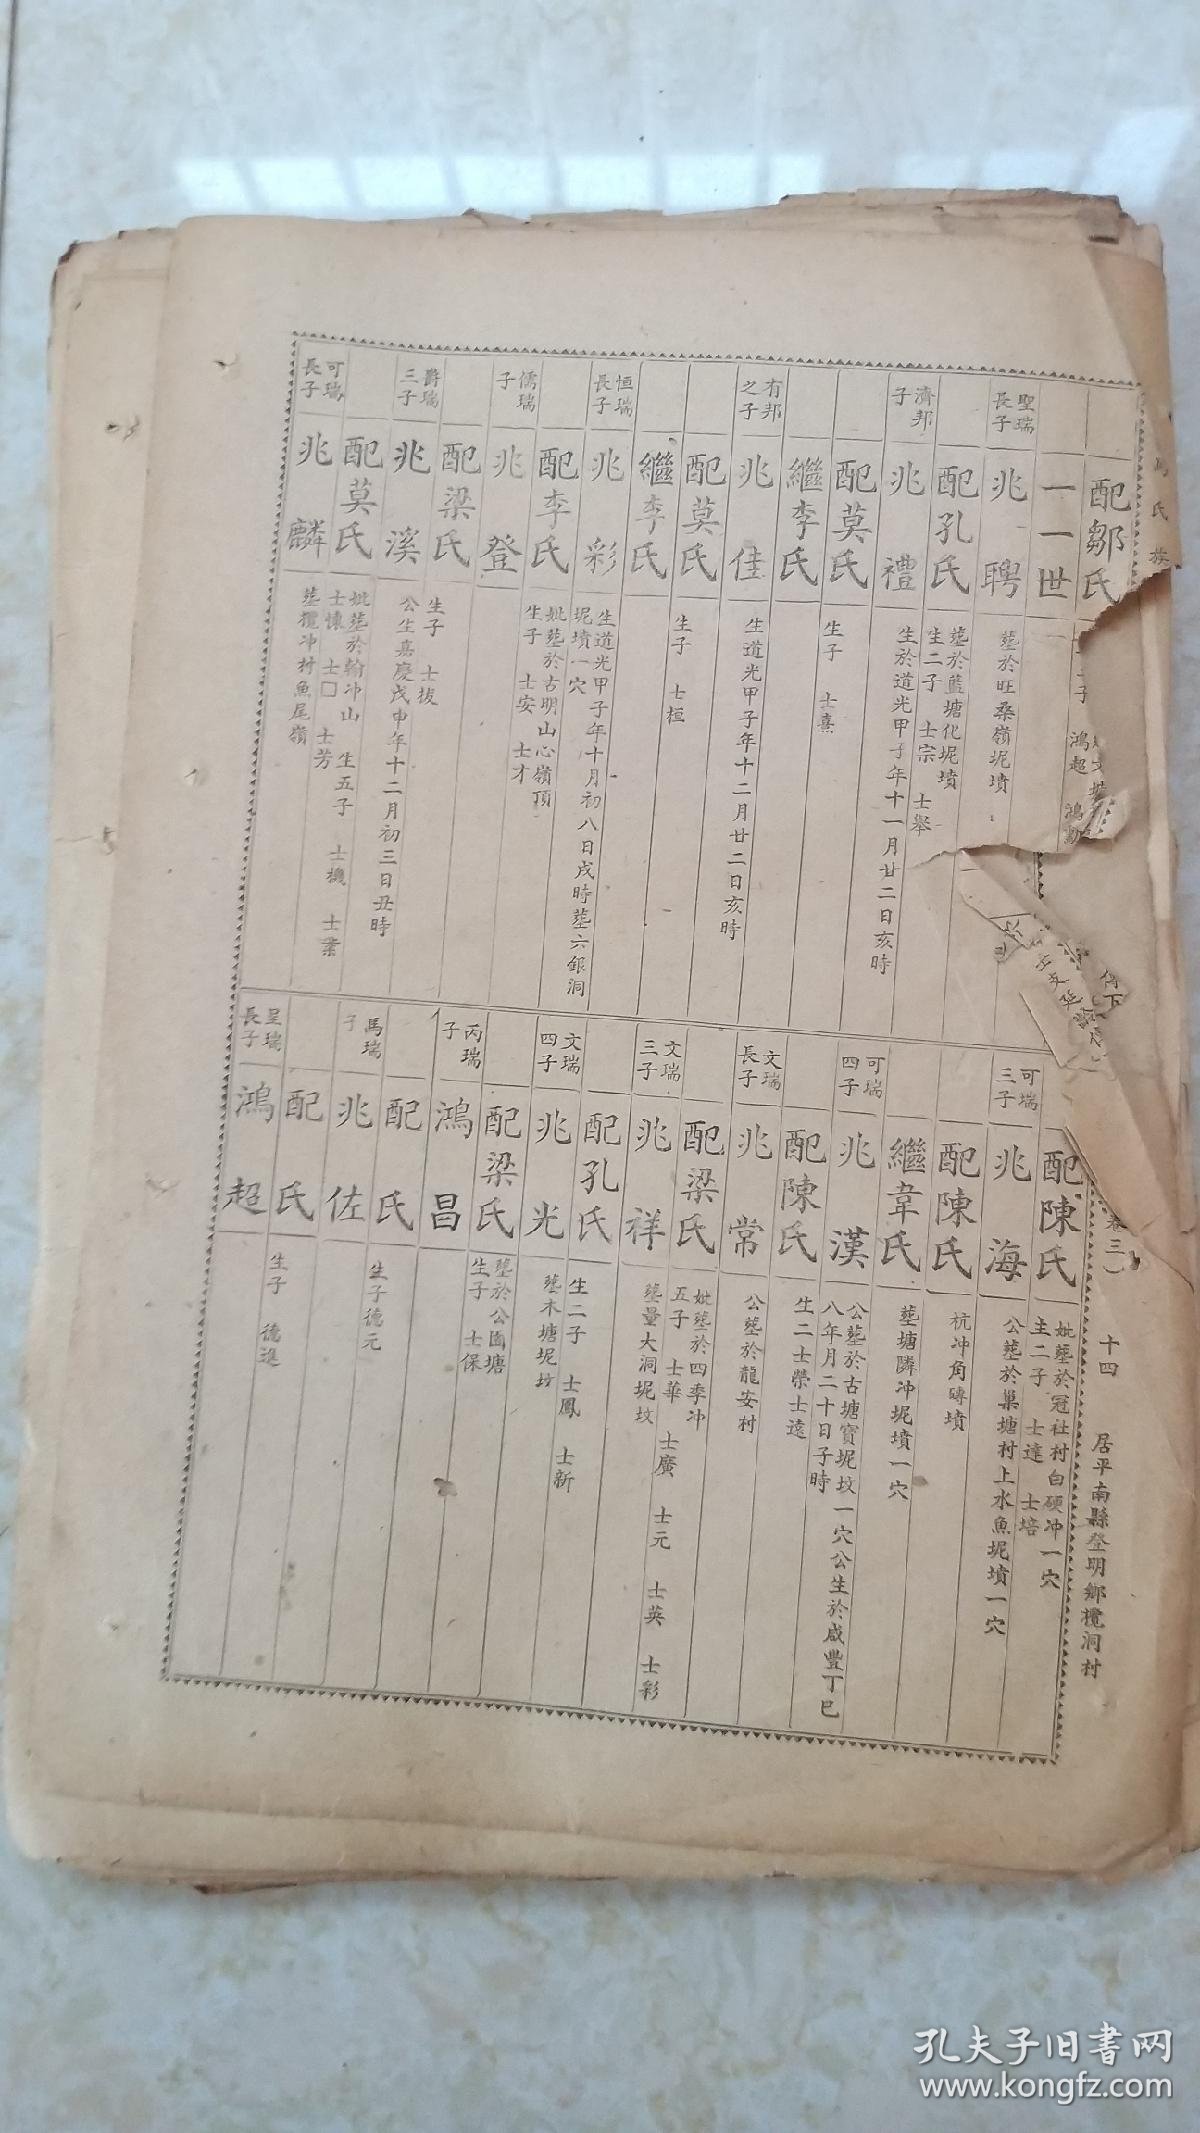 氏族
卷三
十四
居平南縣登明鄉欖洞村
配鄒氏
鴻超
一一世
聖瑞長子
兆聘
葬於旺桑嶺坭墳
配孔氏
葬於藍塘化坭墳
生二子 士宗 士舉
濟邦子
兆禮
生於道光甲子年十一月廿二日亥時
配莫氏
生子 士熹
繼李氏
有邦之子
兆佳
生道光甲子年十二月廿二日亥時
配莫氏
生子 士桓
繼李氏
恒瑞長子
兆彩
生道光甲子年十月初八日戌時葬六銀洞
坭墳一穴
配李氏
妣葬於古明山心嶺頂
生子 士安 士才
儒瑞子
兆登
配梁氏
生子 士拔
爵瑞三子
兆溪
公生嘉慶戊申年十二月初三日丑時
配莫氏
妣葬於翰冲山 生五子 士機 士業
士懷 士口 士芳
可瑞長子
兆麟
葬欖冲村魚尾嶺
配陳氏
妣葬於冠社村白硬冲一穴
主二子 士達 士培
可瑞三子
兆海
公葬於巢塘村上水魚坭墳一穴
配陳氏
杭冲角磚墳
繼韋氏
葬塘隣冲坭墳一穴
可瑞四子
兆漢
公葬於古塘寶坭坟一穴公生於咸豐丁巳
八年月二十日子時
配陳氏
生二士榮士遠
文瑞長子
兆常
公葬於龍安村
配梁氏
妣葬於四季冲
五子 士華 士廣 士元 士英 士彩
文瑞三子
兆祥
葬量大洞坭坟
配孔氏
生二子 士鳳 士新
文瑞四子
兆光
葬木塘坭坟
配梁氏
葬於公園塘
生子 士保
丙瑞子
鴻昌
配氏
生子德元
馬瑞子
兆佐
配氏
生子 德進
呈瑞長子
鴻超
孔夫子旧书网
www.kongfz.com